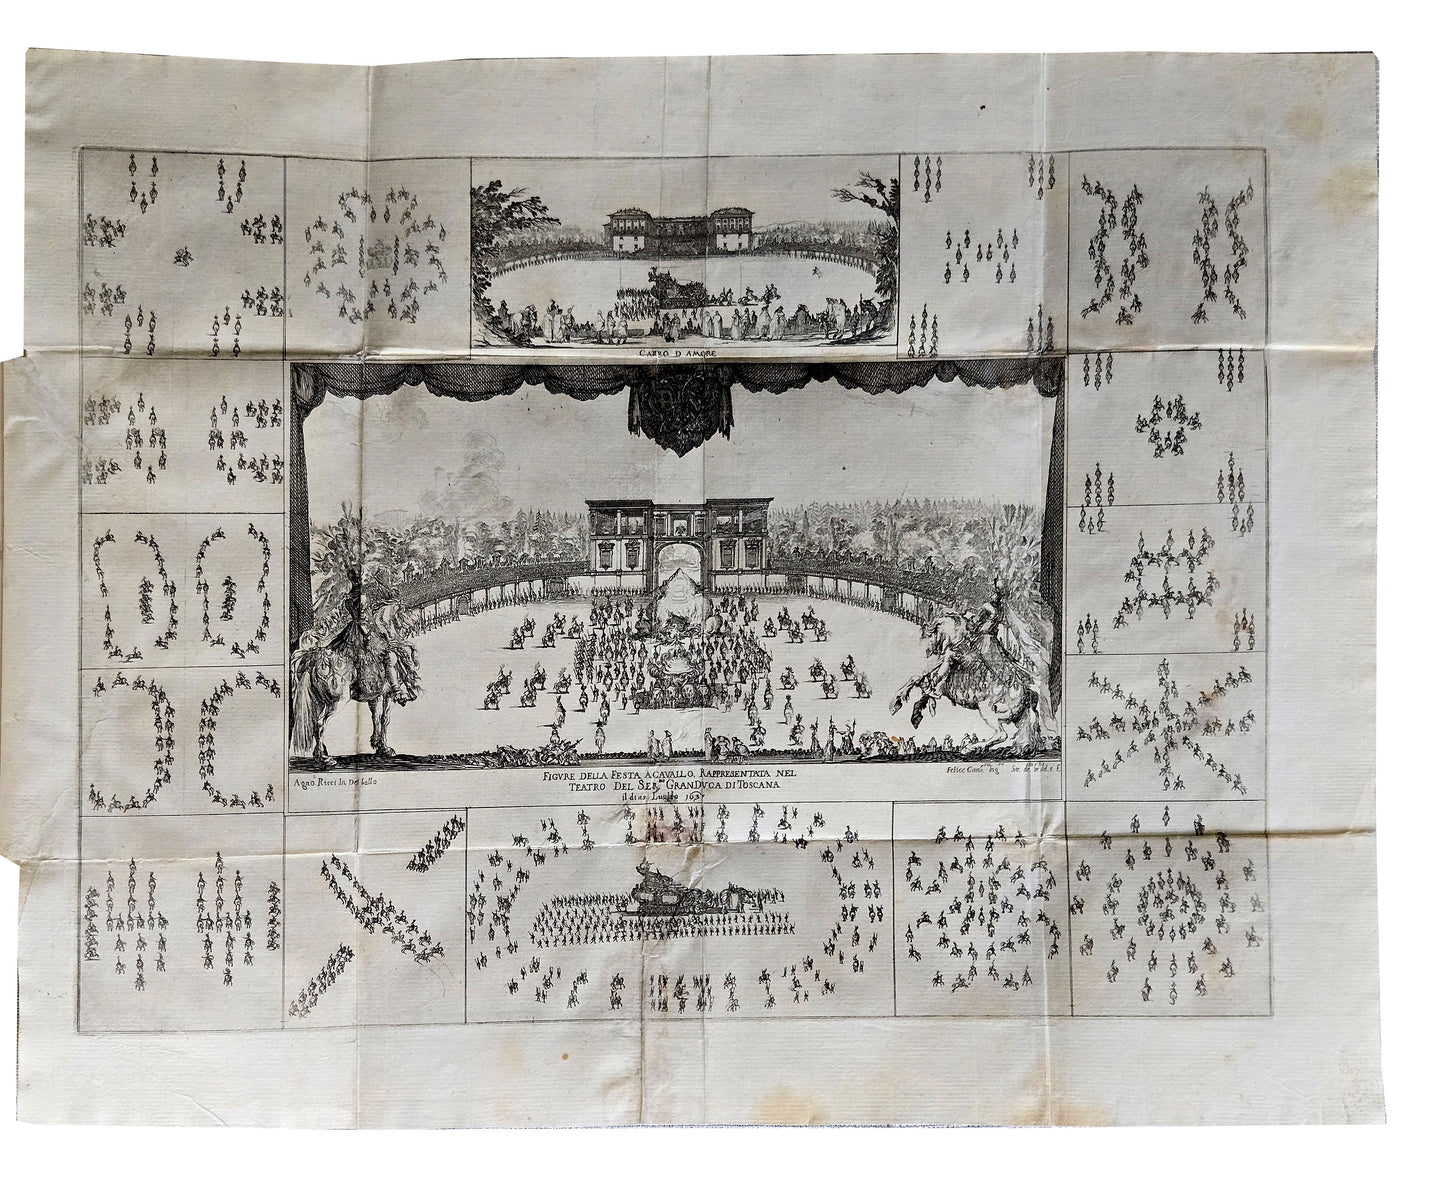 CARRO D AMORE
FIGVRE DELLA FESTA A CAVALLO, RAPPRESENTATA NEL
TEATRO DEL SER.mo GRANDVCA DI TOSCANA
il di 15 Luglio 1637
Agno. Ricci In. Del ballo
Felice Gam. Ing.